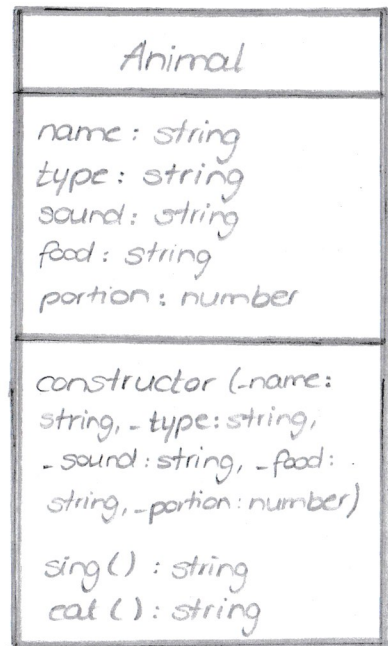 Animal
name: string
type: string
sound: string
food: string
portion: number
constructor (_name:
string, _type: string,
_sound: string, _food:
string, _portion: number)
sing() : string
eat () : string